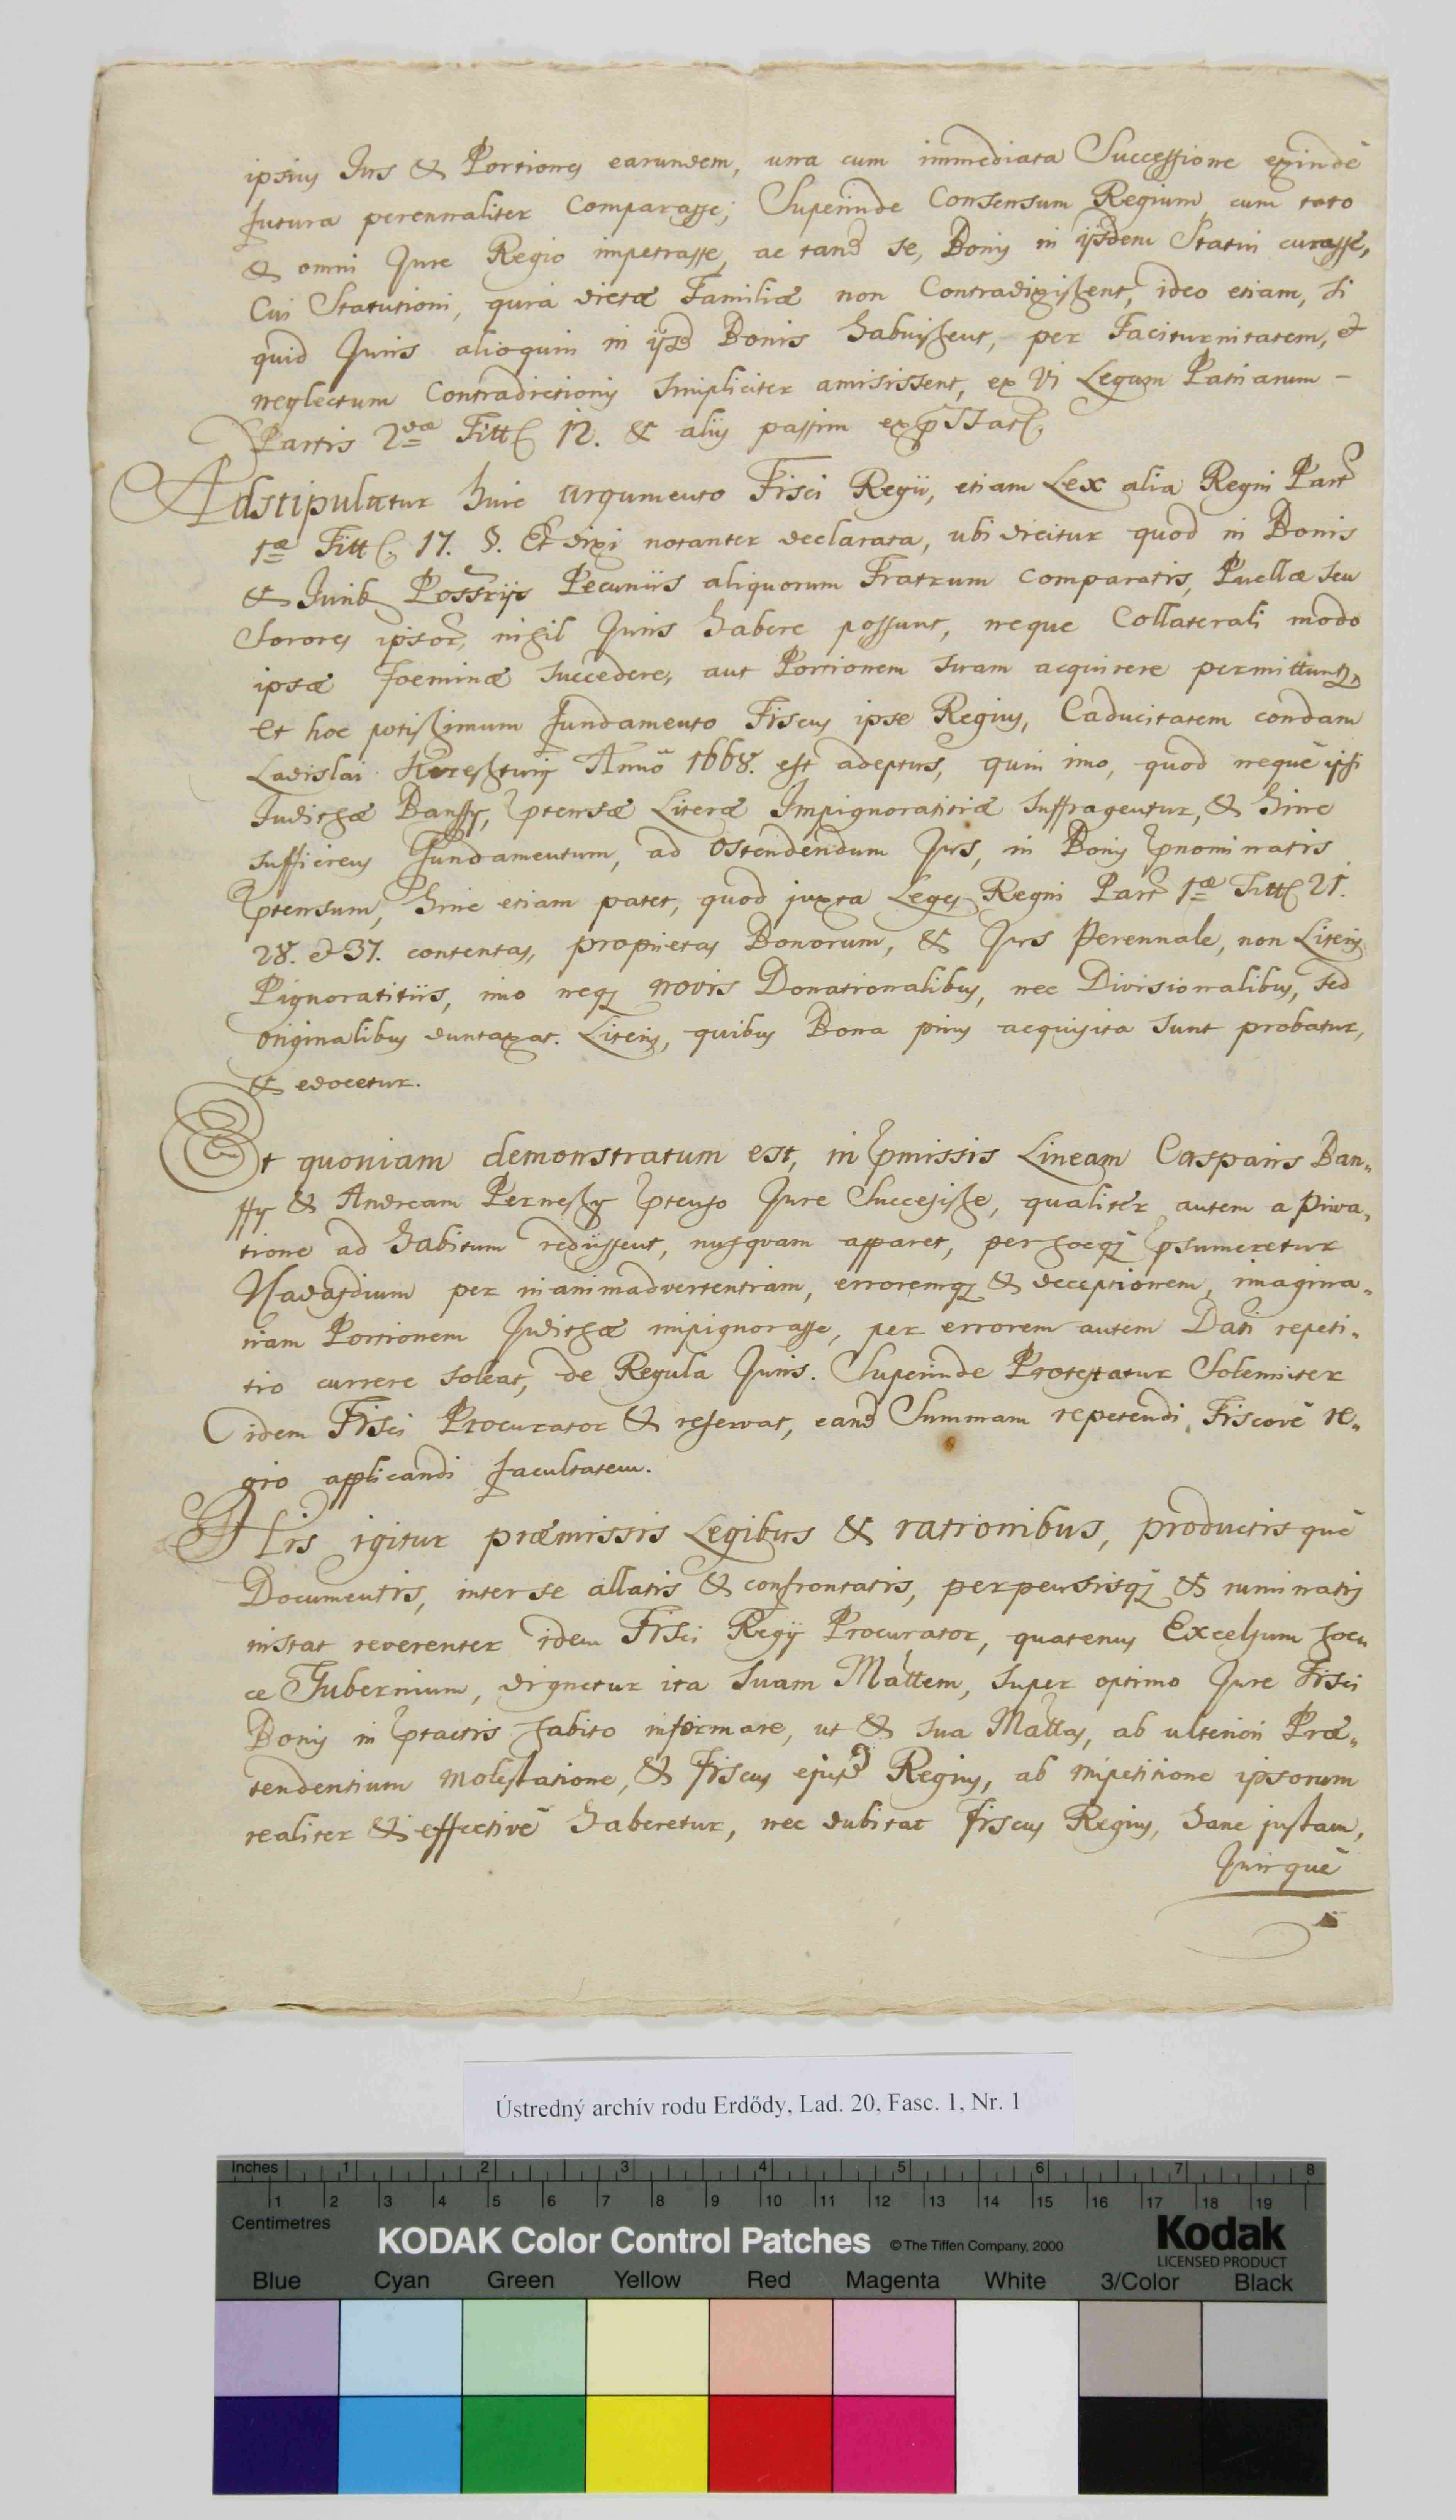 ipsius Jus & Portiones earundem, una cum immediata Successione exinde
futura perennaliter Comparasse; Superinde Consensum Regium, cum toto
& omni Jure Regio impetrasse, ac tand se, Bonis in ijsdem Statui curasse,
Cui Statutioni, quia dictæ Familiæ non Contradixissent, ideo etiam, si
quid Juris alioquin in ijsd Bonis habuissent, per Taciturnitatem, et
neglectum Contradictionis simpliciter amisissent, ex vi Legum Patriarum -
Partis 2dæ Titt 12. & alijs passim
Adstipulatur huic argumento Fisci Regii, etiam Lex alia Regni Part
1æ Titt. 17. §. Et dixi notanter declarata, ubi dicitur quod in Bonis
& Jurib Possrijs Pecuniis aliquorum Fratrum comparatis, Puellæ seu
Sorores ipsor, nihil Juris habere possunt, neque Collaterali modo
ipsæ foeminæ succedere, aut Portionem suam acquirere permittunt,
Et hoc potissimum fundamento Fiscus ipse Regius, Caducitatem condam
Ladislai Kereszturij Anno 1668. est adeptus, quin imo, quod neque ipsi
Judithæ Banffy, ptensæ Literæ Impignoratitiæ suffragentur, & hinc
sufficiens Fundamentum, ad Ostendendum Jus, in Bonis pnominatis
ptensum, hinc etiam patet, quod juxta Leges Regni Part 1æ Titt 21.
28. et 37. contentas, proprietas Bonorum, & Jus Perennale, non Literis
Pignoratitiis, imo neq novis Donationalibus, nec Divisionalibus, sed
Originalibus duntaxat. Literis, quibus Bona prius acquisita sunt probatur,
& edocetur.
Et quoniam demonstratum est, in pmissis Lineam Casparis Ban„
ffy & Andream Perneszy ptenso Jure Successisse, qualiter autem a priva„
tione ad habitum rediissent, nusquam apparet, per hocq psumeretur
Nadasdium per inanimadvertentiam, erroremq & deceptionem, imagina„
riam Portionem Judithæ impignorasse, per errorem autem Dati repeti„
tio currere soleat, de Regula Juris. Superinde Protestatur Solenniter
idem Fisci Procurator & reservat, eand Summam repetendi, Fiscove re„
gio applicandi facultatem.
His igitur præmissis Legibus & rationibus, productisque
Documentis, inter se allatis & confrontatis, perpensisq & ruminatis
instat reverenter idem Fisci Regij Procurator, quatenus Excelsum hoc„
ce Gubernium, dignetur ita suam Mattem, super optimo Jure Fisci
Bonis in ptactis habito informare, ut & sua Mattas, ab ulteriori Præ„
tendentium molestatione, & Fiscus ejusd Regius, ab impetitione ipsorum
realiter & effective haberetur, nec dubitat Fiscus Regius, hanc justam,
Jurique
Ústredný archív rodu Erdődy, Lad. 20, Fasc. 1, Nr. 1
Inches 1 2 3 4 5 6 7 8
1 2 3 4 5 6 7 8 9 10 11 12 13 14 15 16 17 18 19
Centimetres
KODAK Color Control Patches © The Tiffen Company, 2000 Kodak
LICENSED PRODUCT
Blue Cyan Green Yellow Red Magenta White 3/Color Black